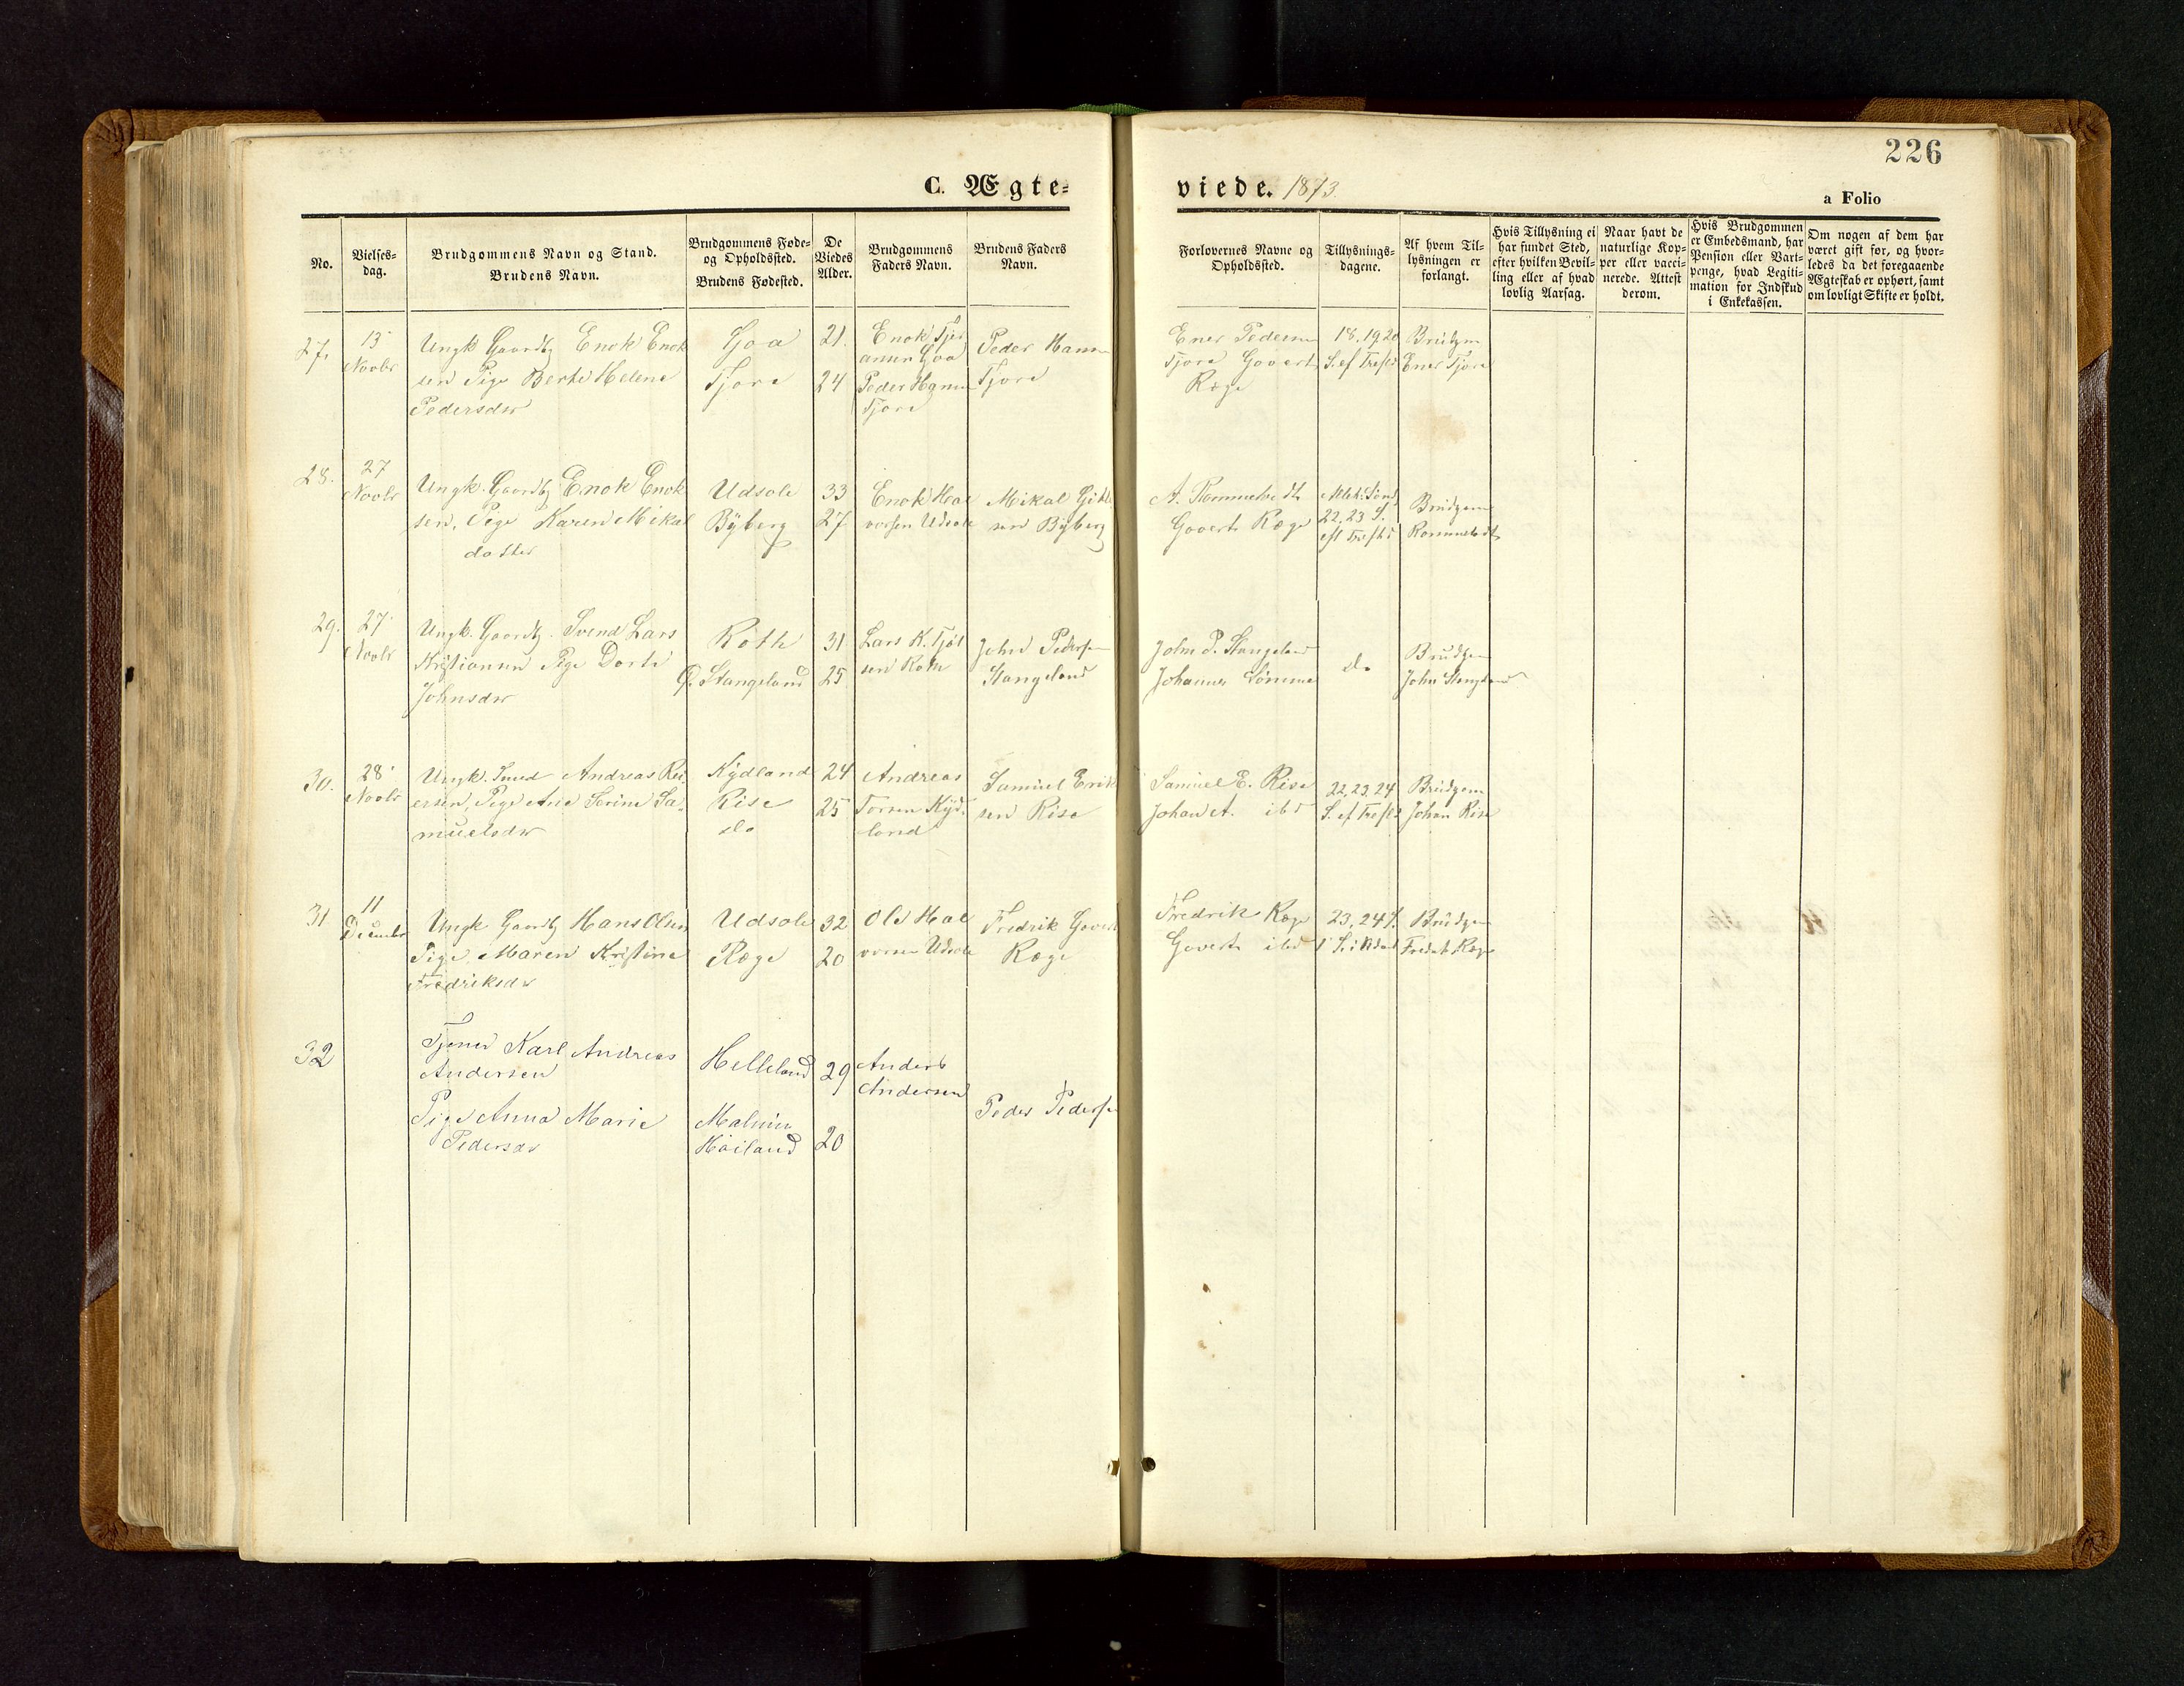 226
C. Ægte-
viede. 1873.
a Folio
No.
Vielses-
dag.
Brudgommens Navn og Stand.
Brudens Navn.
Brudgommens Føde-
og Opholdssted.
Brudens Fødested.
De
Viedes
Alder.
Brudgommens
Faders Navn.
Brudens Faders
Navn.
Forlovernes Navne og
Opholdssted.
Tillysnings-
dagene.
Af hvem Til-
lysningen er
forlangt.
Hvis Tillysning ei
har fundet Sted,
efter hvilken Bevil-
ling eller af hvad
lovlig Aarsag.
Naar havt de
naturlige Kop-
per eller vacci-
nerede. Attest
derom.
Hvis Brudgommen
er Embedsmand, har
Pension eller Vart-
penge, hvad Legiti-
mation for Indskud
i Enkekassen.
Om nogen af dem har
været gift før, og hvor-
ledes da det foregaaende
Ægteskab er ophørt, samt
om lovligt Skifte er holdt.
27.
13
Novbr
Ungk Gaardbg Enok Enok
sen Pige Berte Helene
Pedersdtr
Goa
Tjora
21.
24
Enok
Goa
Peder Hansen
Tjora
Peder Hansen
Tjora
Ener Pedersen
Tjora Govert
Rege
18, 19 20
S. ef Trefst
Brudgm
Ener Tjora
28.
27
Novbr
Ungk. Gaardbg Enok Enok
sen, Pige Karen Mikal
datter
Udsole
Byberg
33
27
Enok Hal
vorsen Udsole
Mikal
sen Byberg
A. Rommetvedt
Govert Rege
22, 23 S.
Brudgom
Rommetvedt
29.
27
Novbr
Ungk. Gaardbg. Svend Lars
Kristiansen Pige Dorte
Johnsdtr
Roth
Stangeland
31
25
Lars K.
sen Roth
John Pedersen
Stangeland
John P. Stangeland
Johannes Sømme
do
Brudgom
John Stangeland
30.
28
Novbr
Ungk. Smed Andreas
Pige Ane Serine Sa-
muelsdtr
Kydland
Rise
do
24
25
Andreas
Kyd-
land
Samuel Erik
sen Rise
Samuel E. Rise
Johan A. ibd
22, 23, 24
S. ef Trefst
Brudgom
Johan Rise
31
11
December
Ungk Gaardbg Hans Olsen
Pige Maren Kristine
Fredriksdtr
Udsole
Rege
32
20
Ole Hal
vorsen Udsole
Fredrik Govert
Rege
Fredrik Rege
Govert ibd
23, 24
Brudgom
Fredrik Rege
32
Tjener Karl Andreas
Andersen
Pige Anna Marie
Pedersdr
Helleland
Malmin
Høiland
29
20
Anders
Andersen
Peder Pedersen